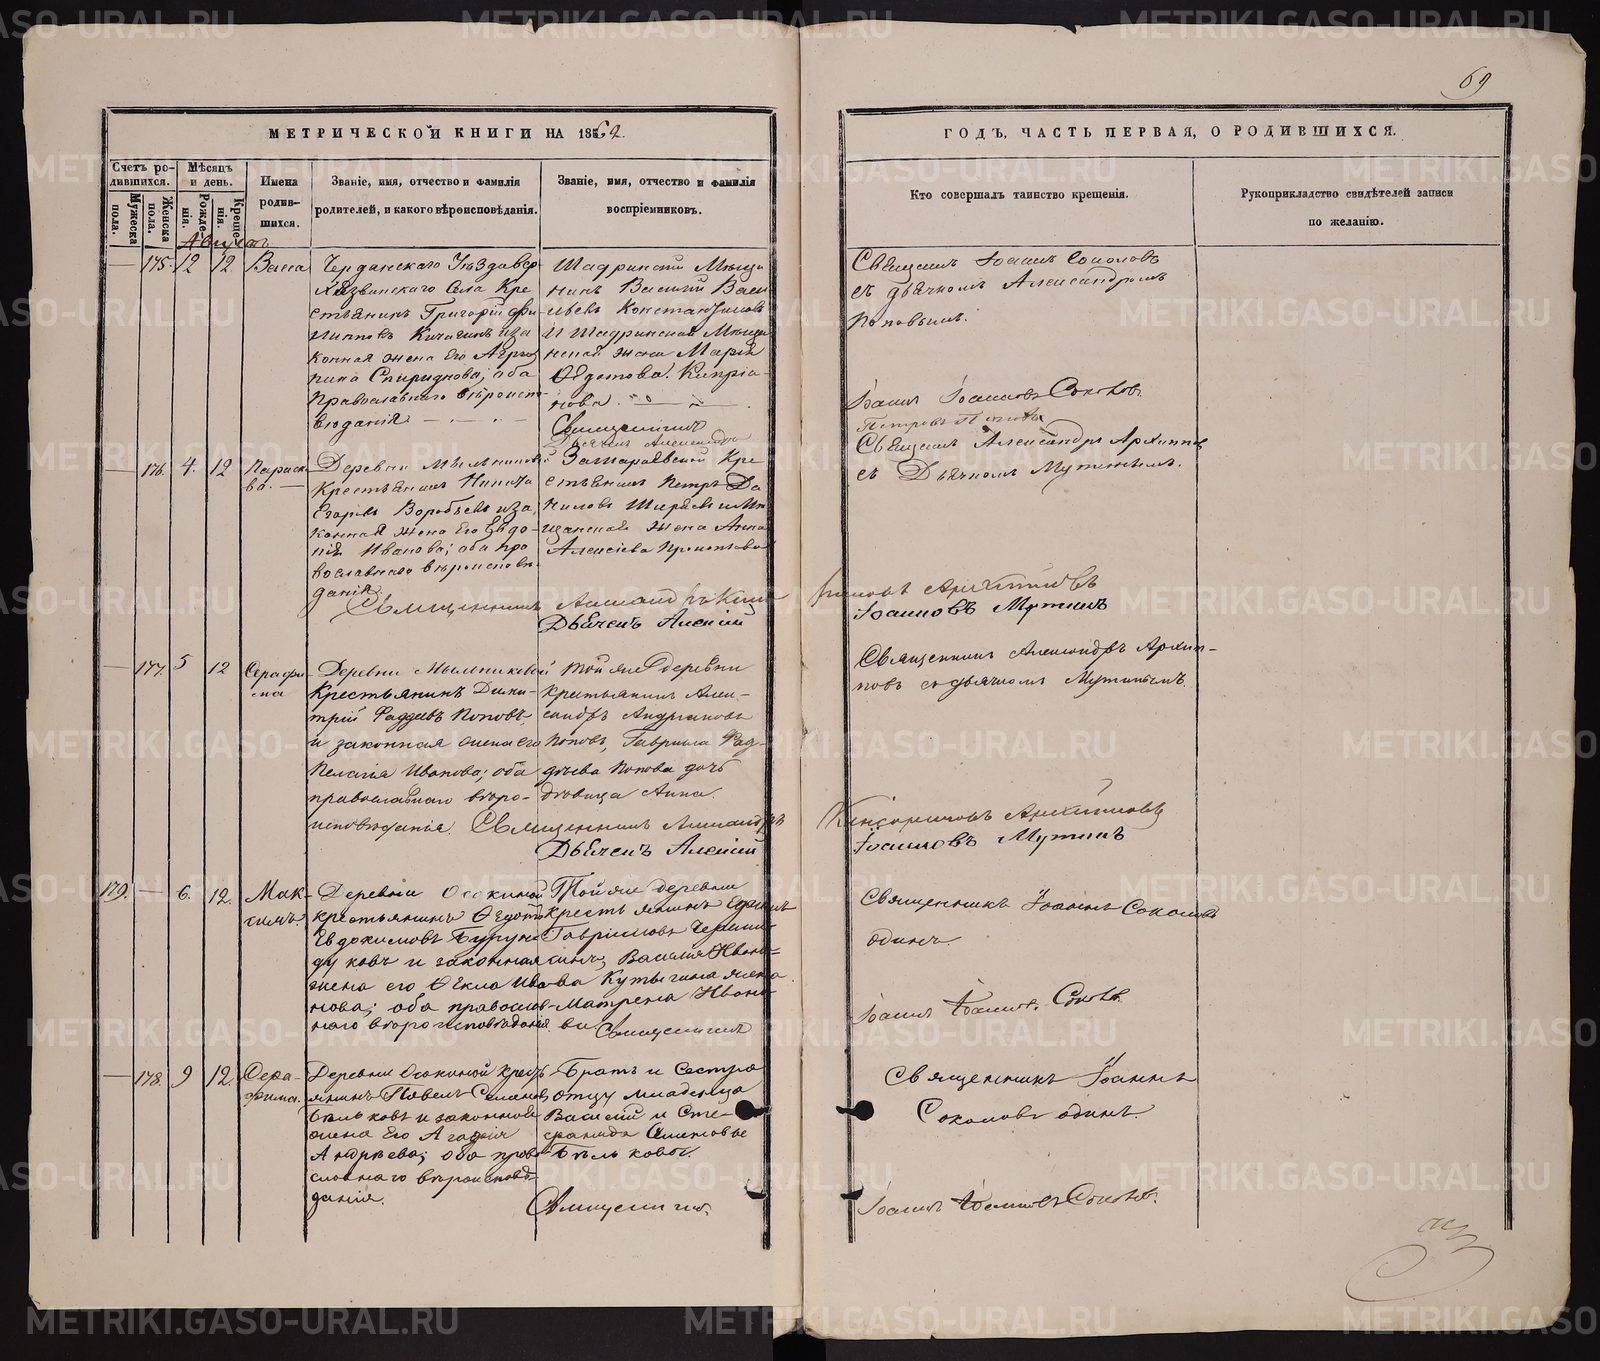 69
МЕТРИЧЕСКОЙ КНИГИ НА 1864.
ГОДЪ, ЧАСТЬ ПЕРВАЯ, О РОДИВШИХСЯ.
Счетъ родившихся.
Мужеска пола.
Женска пола.
Мѣсяцъ и день.
Рожденія.
Крещенія.
Имена родившихся.
Званіе, имя, отчество и фамилія
родителей, и какого вѣроисповѣданія.
Званіе, имя, отчество и фамилія
воспріемниковъ.
Кто совершалъ таинство крещенія.
Рукоприкладство свидѣтелей записи
по желанію.
Августъ
— 175 12 12 Васса
Чердынскаго Уѣзда Вер-
язвинскаго Села Кре
стьянинъ Григорій Фи-
липповъ Кичигинъ и за
конная жена его Агрип
пина Спиридонова; оба
Православнаго вѣроиспо
вѣданія
Шадринскій Мѣща
нинъ Василій Васи
льевъ Константиновъ
и Шадринская Мѣщан
ская жена Марія
Ѳедотова Кипріа-
нова.
Священникъ
Дьячекъ Александръ
Священникъ Іоаннъ Соколовъ
съ дьячкомъ Александромъ
Поповымъ.
Іоаннъ Іоанновъ Соколовъ.
Петровъ Поповъ
— 176. 4. 12 Параске
ва. —
Деревни Мыльниковой
Крестьянинъ Никита
Егоровъ Воробьевъ и за
конная жена его Евдо-
кія Иванова; оба пра
вославнаго вѣроисповѣ
данія.
Замараевской Кре
стьянинъ Петръ Да
ниловъ Ширяевъ и Мѣ
щанская жена Анна
Алексіева Прокопьева
Священникъ Александръ
Дьячекъ Алексій
Священникъ Александръ Архиповъ
съ Дьячкомъ Мутинымъ.
Архиповъ
Іоанновъ Мутинъ
— 177. 5 12 Серафи-
ма
Деревни Мыльниковой
Крестьянинъ Дими-
трій Фаддевъ Поповъ,
и законная жена его
Пелагія Иванова; оба
православнаго вѣро-
исповѣданія.
Той же деревни
крестьянинъ Алек-
сандръ Андріановъ
Поповъ, Гавріила Фад-
дѣева Попова дочь
дѣвица Анна.
Священникъ Александръ
Дьячекъ Алексій
Священникъ Александръ Архип-
повъ съ дьячкомъ Мутинымъ.
Архиповъ
Іоанновъ Мутинъ
179. — 6. 12. Мак-
симъ.
Деревни Осокиной
крестьянинъ Ѳедотъ
Евдокимовъ Бурун-
дуковъ и законная
жена его Ѳекла Ива-
нова; оба православ-
наго вѣроисповѣданія.
Той же деревни
крестьянинъ
Гавріиловъ
Василія Ивано-
ва Кутыгина жена
Матрена Ивано-
ва
Священникъ
Священникъ Іоаннъ Соколовъ
одинъ.
Іоаннъ Іоанновъ Соколовъ.
— 178. 9 12 Сера-
фима.
Деревни Осокиной Кресть-
янинъ Павелъ
Бѣльковъ и законная
жена его Агафія
Андреева; оба право
славнаго вѣроисповѣ-
данія.
Братъ и Сестра
отцу младенца
Василій и Сте-
фанида
Бѣльковы.
Священникъ
Священникъ Іоаннъ
Соколовъ одинъ.
Іоаннъ Іоанновъ Соколовъ.
METRIKI.GASO-URAL.RU